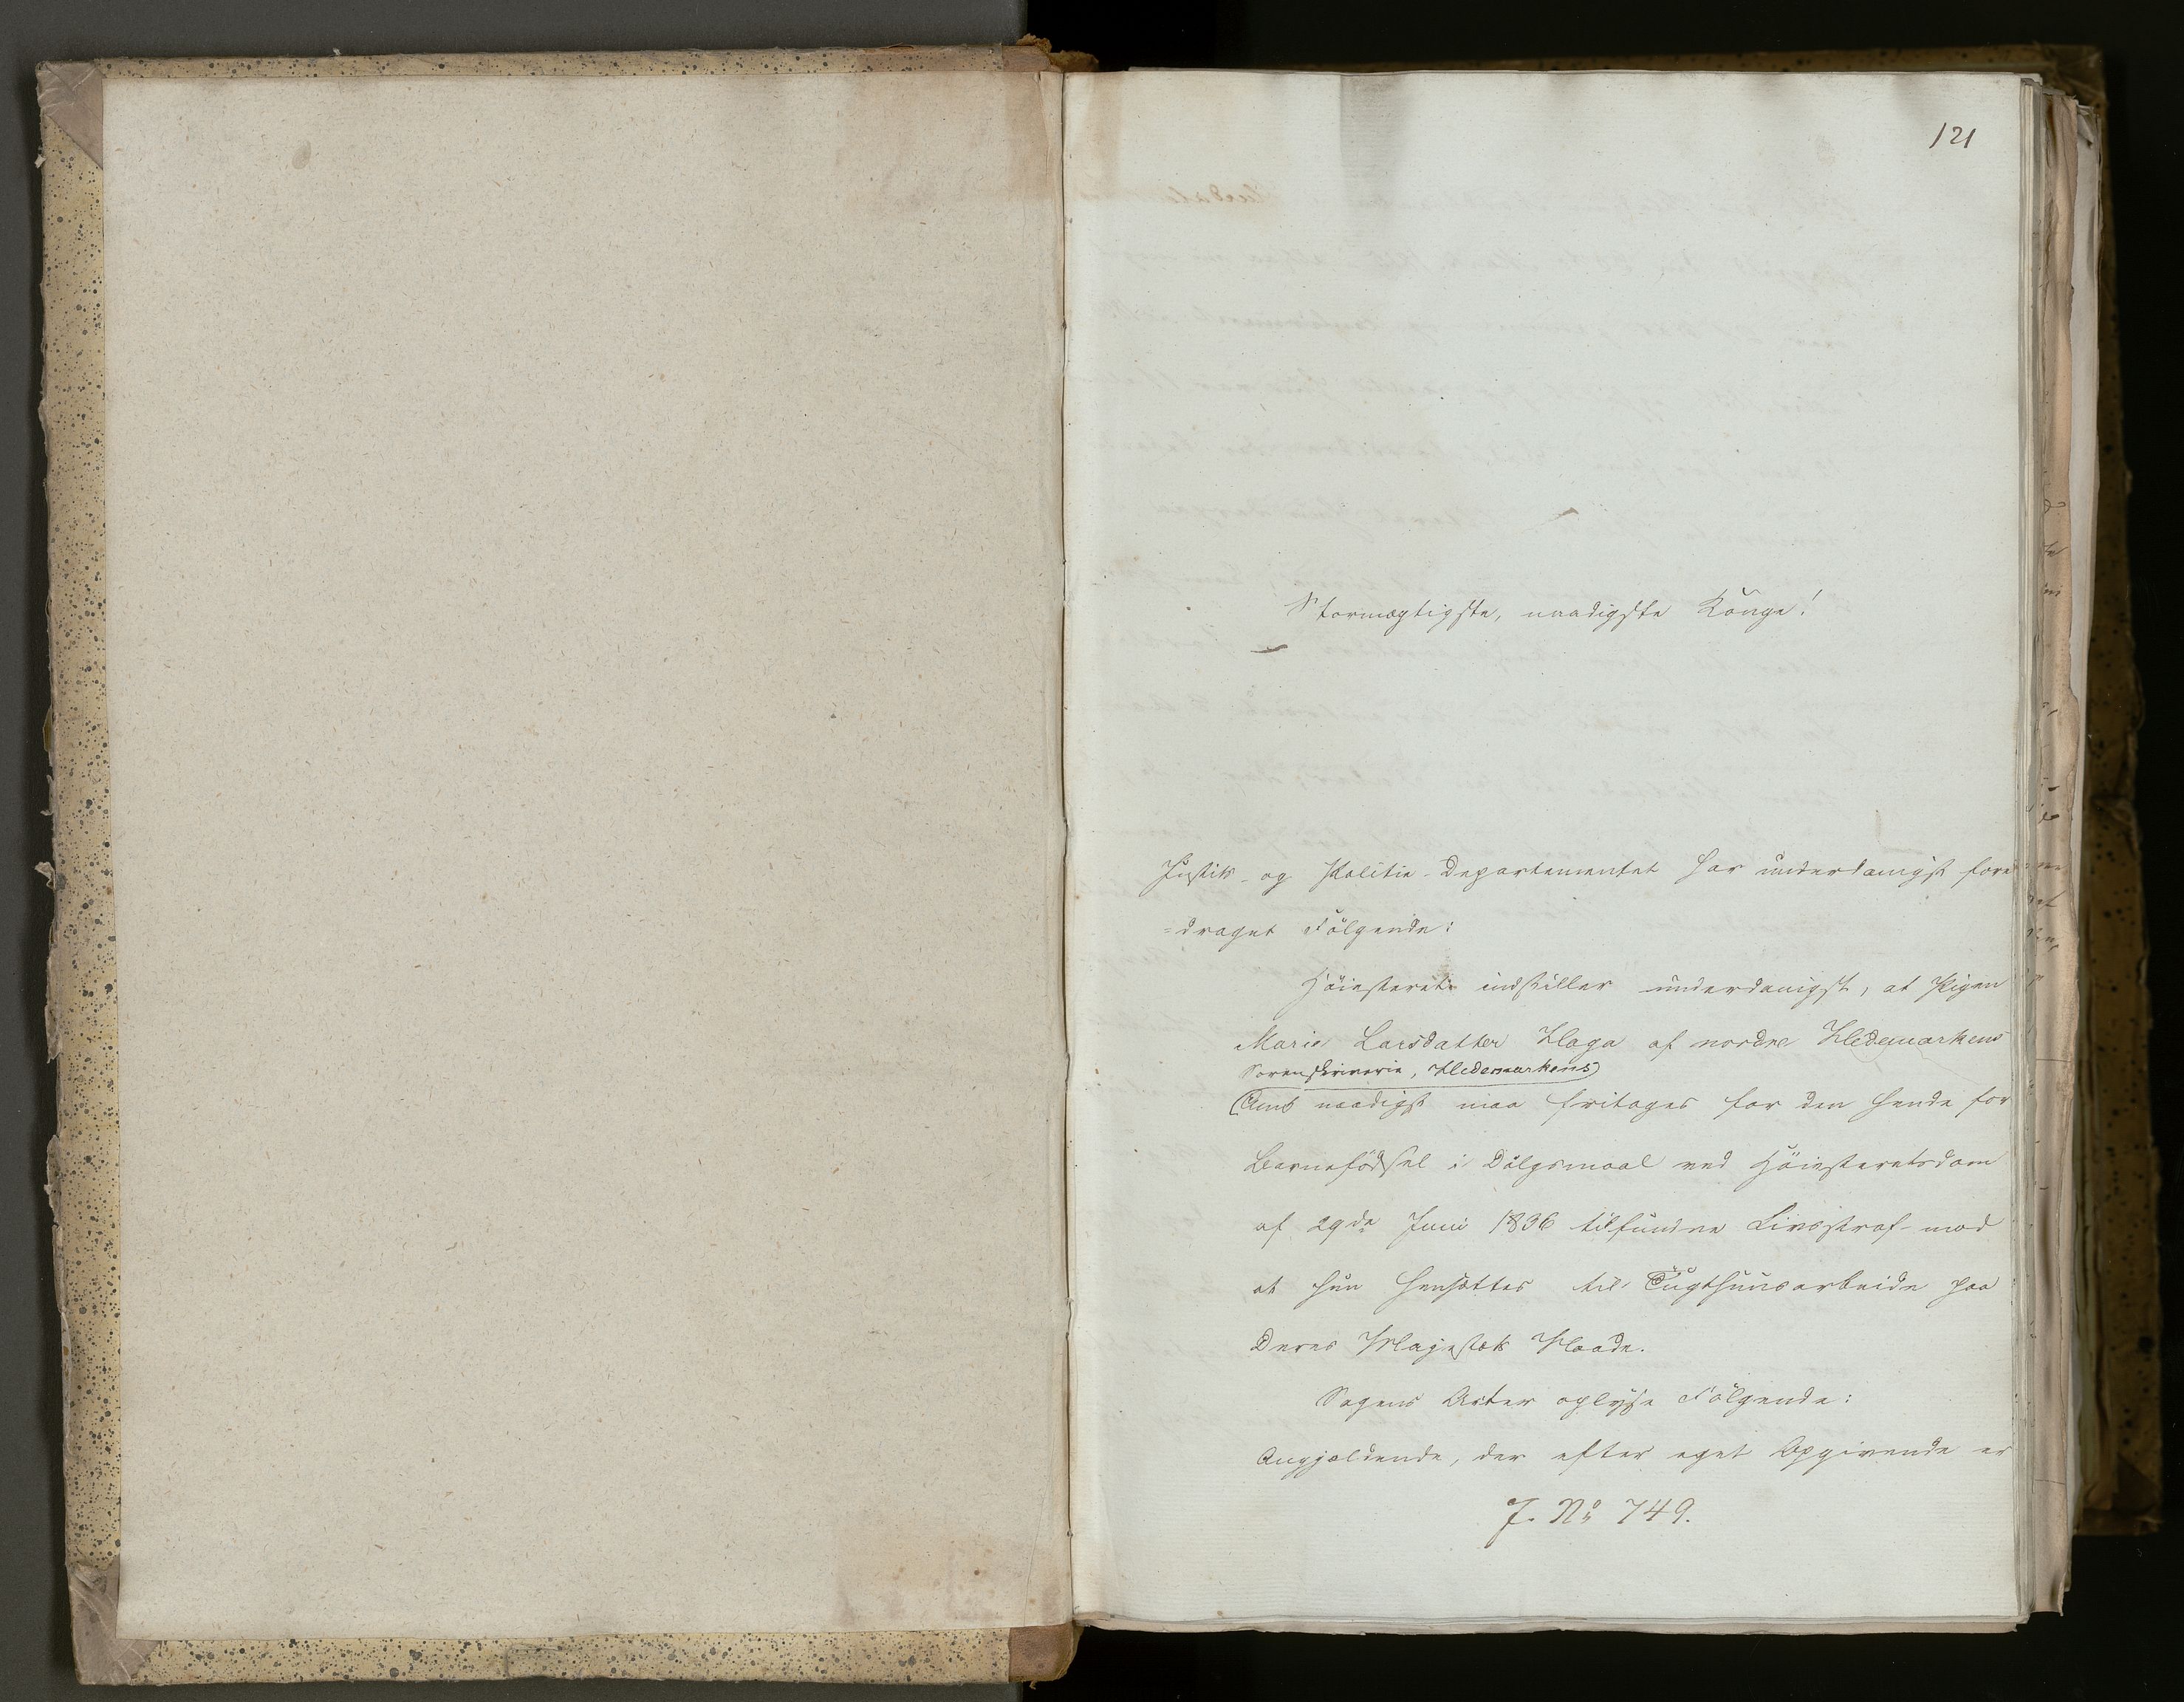 121
Stormægtigste, naadigste Konge!
Justits- og Politie-Departementet har underdanigst fore
=draget Følgende:
Høiesteret indstiller underdanigst, at Pigen
Marie Larsdatter Haga af nordre Hedemarkens
Sorenskriverie, Hedemarkens
Amt naadigst maa fritages for den hende for
Barnefødsel i Dølgsmaal ved Høiesteretsdom
af 29de Juni 1836 tilfundne Livsstraf mod
at hun hensættes til Tugthuusarbeide paa
Deres Majestæts Naade.
Sagens Akter oplyse Følgende:
Angjældende, der efter eget Opgivende er
J. No 749.